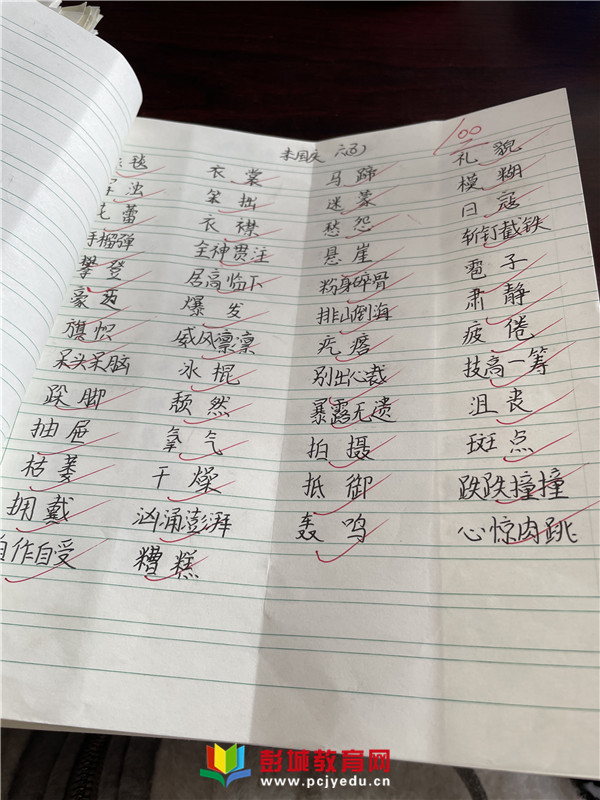 100
毡 衣裳 马蹄 礼貌
浊 笨拙 迷蒙 模糊
蕾 衣襟 愁怨 日寇
手榴弹 全神贯注 悬崖 斩钉截铁
攀登 居高临下 粉身碎骨 雹子
豪迈 爆发 排山倒海 肃静
旗帜 威风凛凛 疙瘩 疲倦
呆头呆脑 冰棍 别出心裁 技高一筹
跺脚 颓然 暴露无遗 沮丧
抽屉 气 拍摄 斑点
枯萎 干燥 抵御 跌跌撞撞
拥戴 汹涌澎湃 轰鸣 心惊肉跳
自作自受 糟糕
彭城教育网
www.pcjyedu.cn